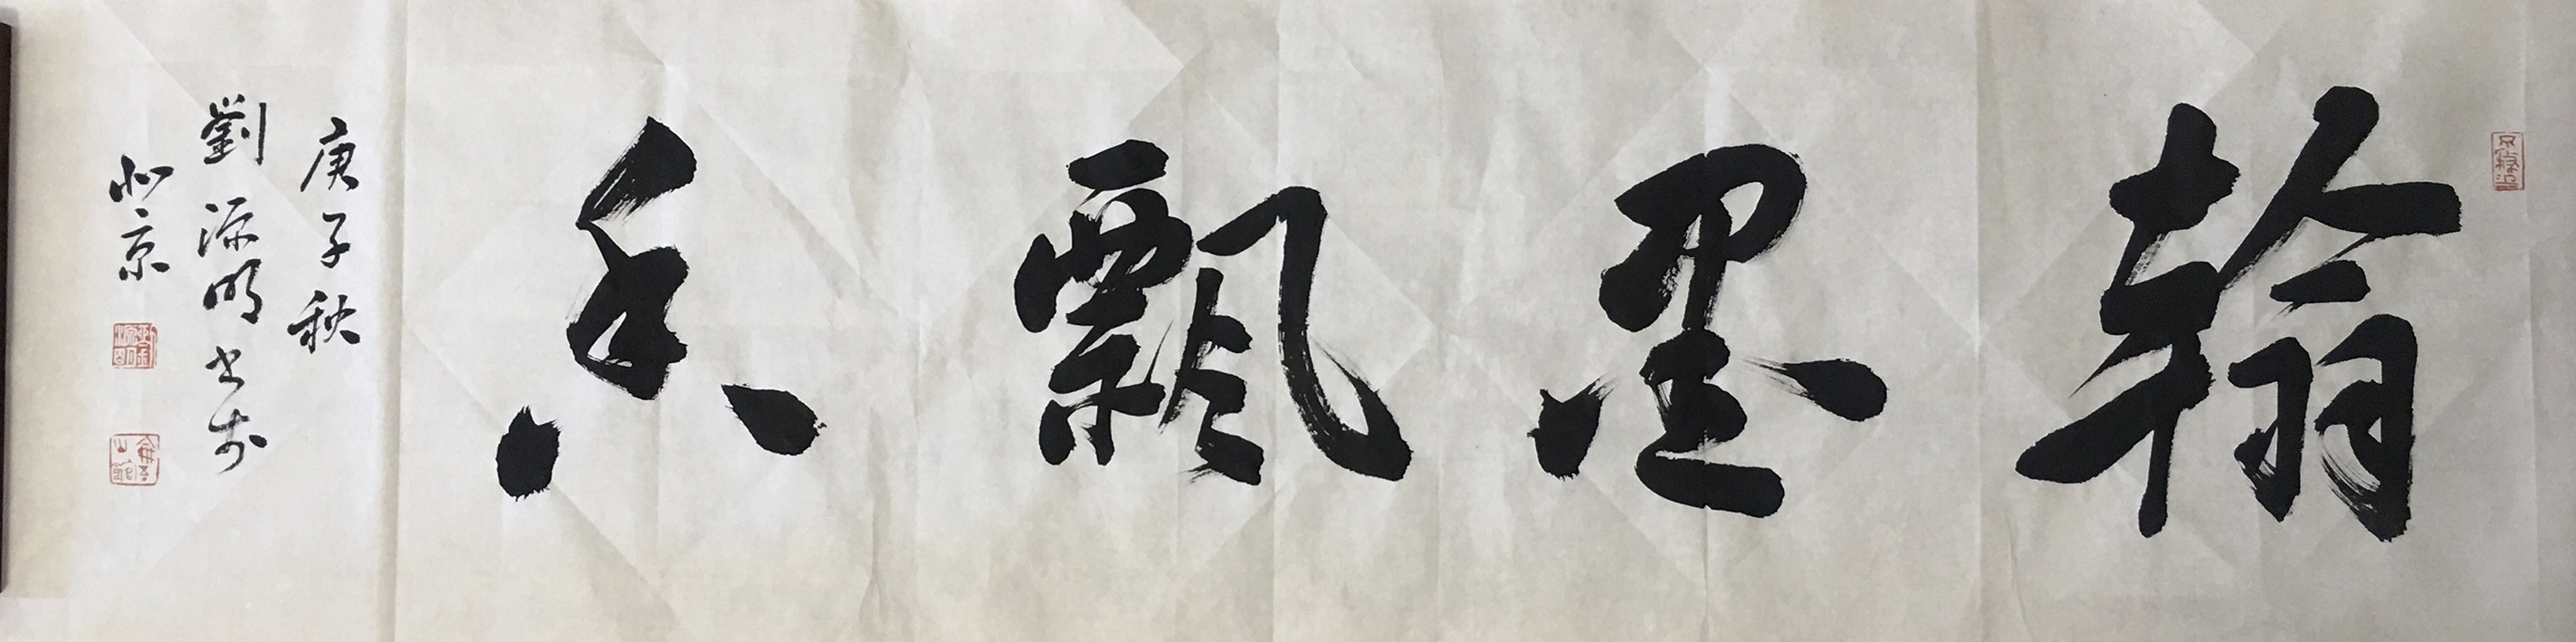 翰墨飄香
庚子秋
劉源明书於
北京